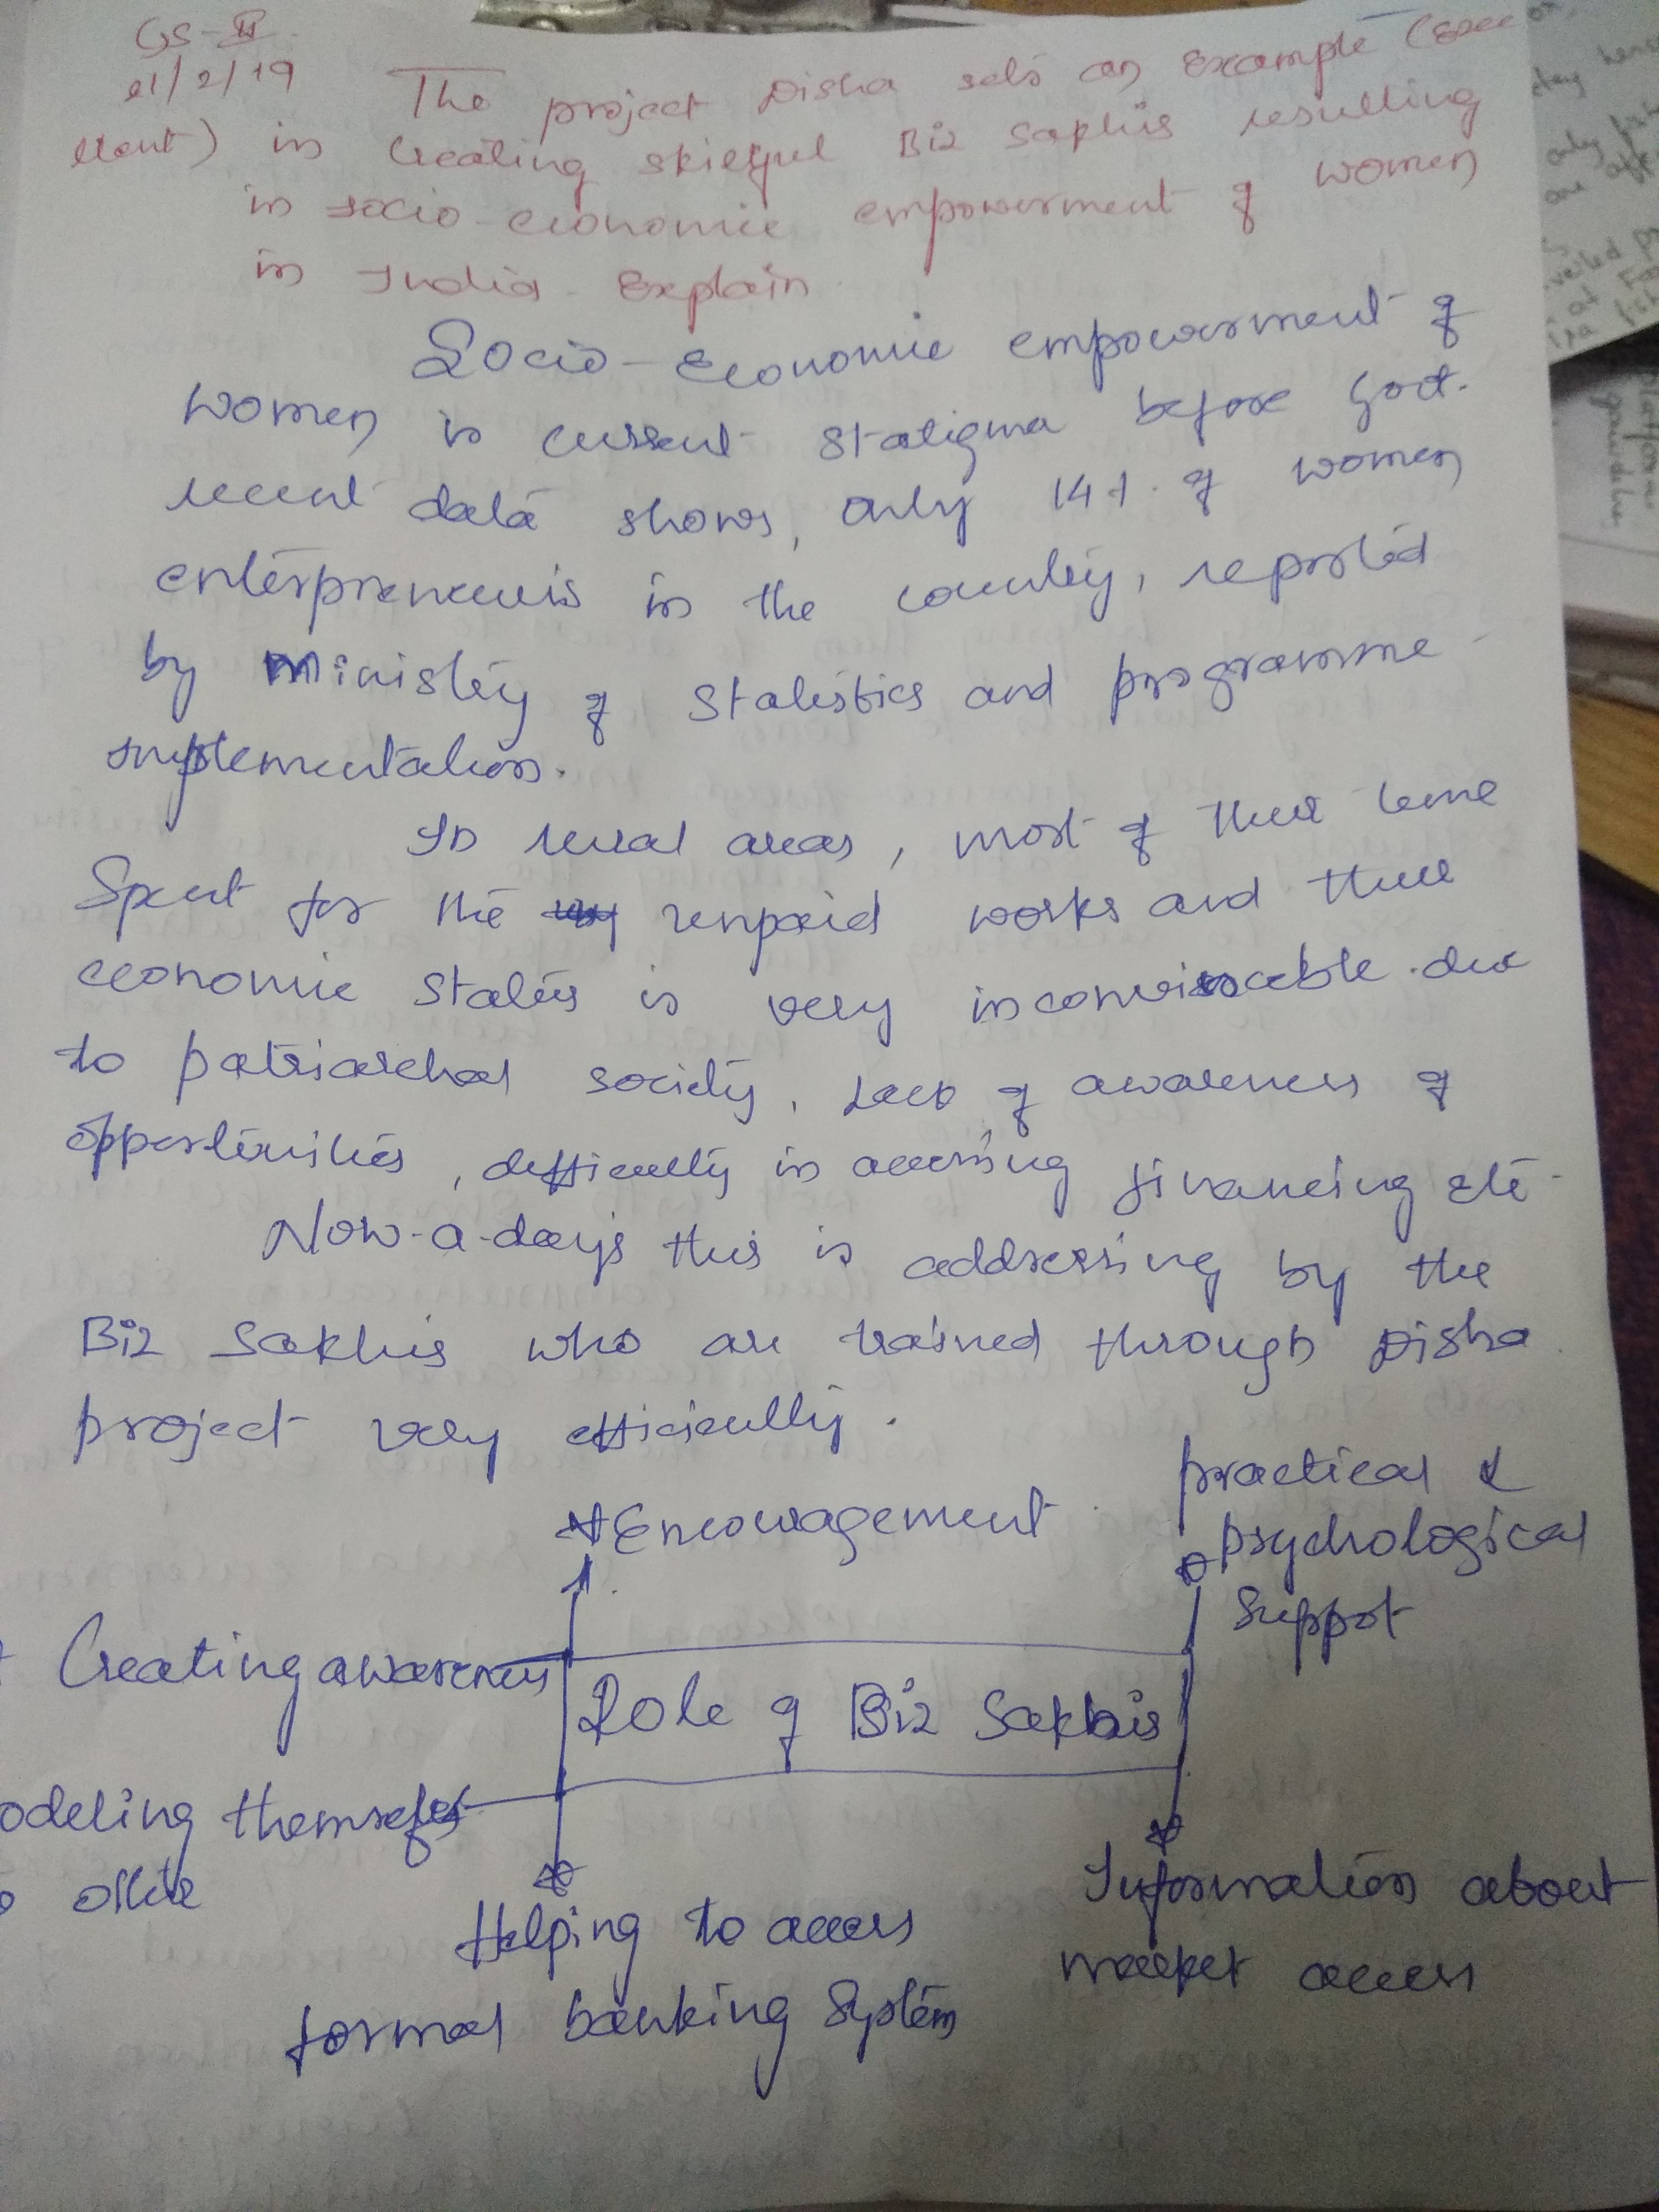 GS-II
21/2/19
The project Disha sets an Example (exce
llent) in Creating skillful Biz Sakhis resulting
in socio-economic empowerment of women
in India. Explain.
Socio-Economic empowerment of
women is current statigma before Govt.
recent data shows, only 14% of women
enterpreneuris in the country, reported
by Ministry of Statistics and programme
implementation.
In rural areas, most of their time
Spent for the unpaid works and their
economic status is very inconvincable due
to patriarchal society, Lack of awareness of
opportunities, difficulty in accessing financing etc.
Now-a-days this is addressing by the
Biz Sakhis who are trained through Disha
project very efficiently.
Encouragement
practical &
psychological
Suppot
Creating awareness
Role of Biz Sakhis
odeling themselfes
other
Helping to access
formal banking System
Information about
market access